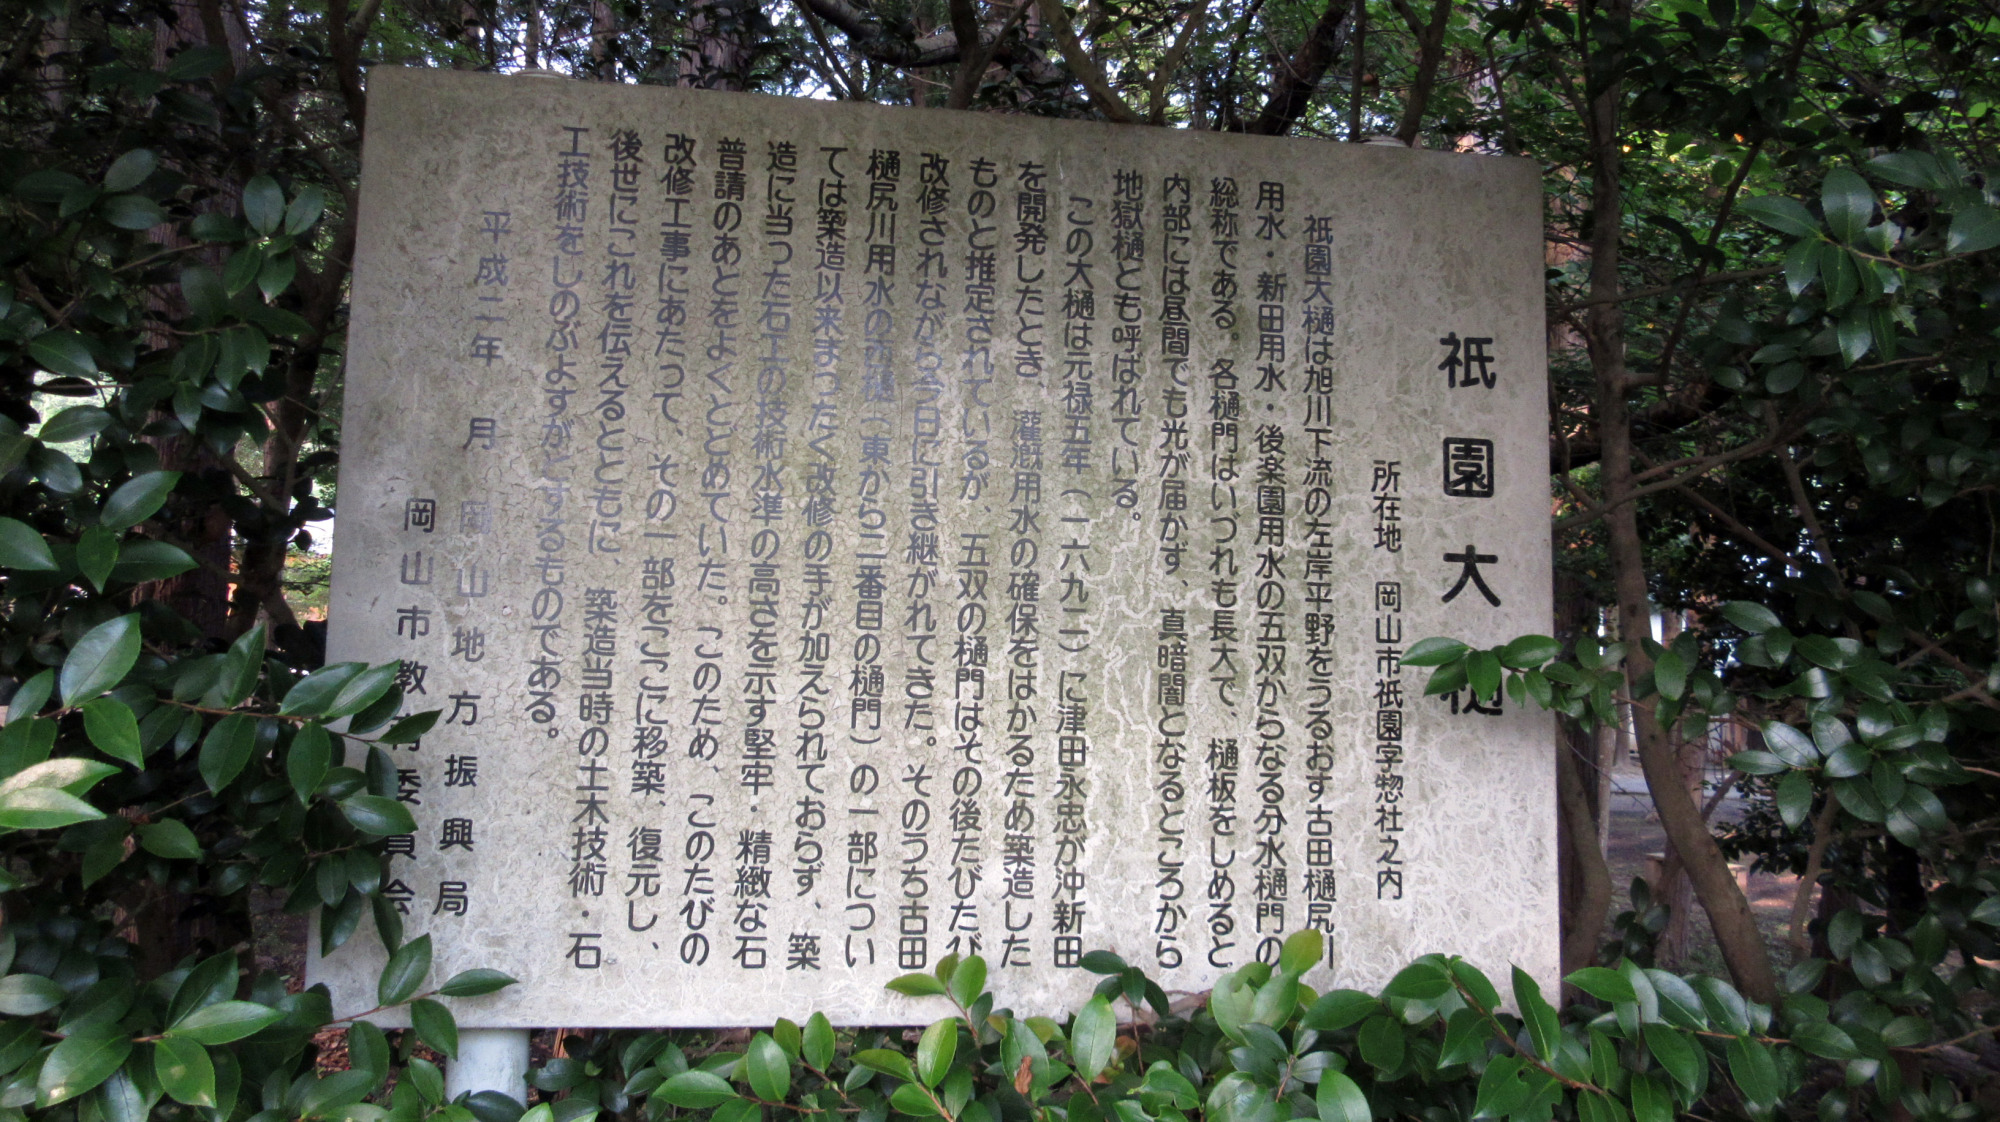 祇園大樋
所在地 岡山市祇園字惣社之内
祇園大樋は旭川下流の左岸平野をうるおす古田樋尻川
用水・新田用水・後楽園用水の五双からなる分水樋門の
総称である。各樋門はいづれも長大で、樋板をしめると
内部には昼間でも光が届かず、真暗闇となるところから
地獄樋とも呼ばれている。
この大樋は元禄五年(一六九二)に津田永忠が沖新田
を開発したとき、灌漑用水の確保をはかるため築造した
ものと推定されているが、五双の樋門はその後たびたび
改修されながら今日に引き継がれてきた。そのうち古田
樋尻川用水の古樋(東から二番目の樋門)の一部につい
ては築造以来まったく改修の手が加えられておらず、築
造に当った石工の技術水準の高さを示す堅牢・精緻な石
普請のあとをよくとどめていた。このため、このたびの
改修工事にあたって、その一部をここに移築、復元し、
後世にこれを伝えるとともに、築造当時の土木技術・石
工技術をしのぶよすがとするものである。
平成二年 月
岡山地方振興局
岡山市教育委員会